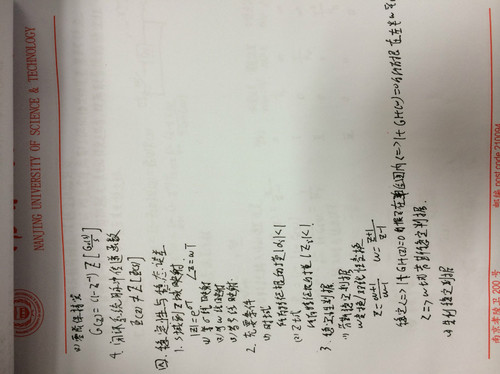 NANJING UNIVERSITY OF SCIENCE & TECHNOLOGY
(2) 零阶保持器
G(z)=(1-z⁻¹) Z[G₀(s)/s]
4. 闭环系统脉冲传递函数
Z[E(s)]
四. 稳定性与稳态误差
1. S域到Z域映射
|z|=e^σT ∠z=ωT
(1) 等σ线映射
(2) 等ω线映射
(3) 等ξ线映射.
2. 充要条件
(1) 时域
所有特征根的模|αi|<1
(2) Z域
所有特征根的模|Zi|<1
3. 稳定性判据
(1) 劳斯稳定判据
w变换/双线性变换
z=w+1/w-1 w=z+1/z-1
稳定<=>1+GH(z)=0的根在单位圆内<=>1+GH(w)=0的所有根在左半w平
w域劳斯稳定判据.
(2) 朱利稳定判据
南京孝陵卫 200 号 邮编 post code 210094